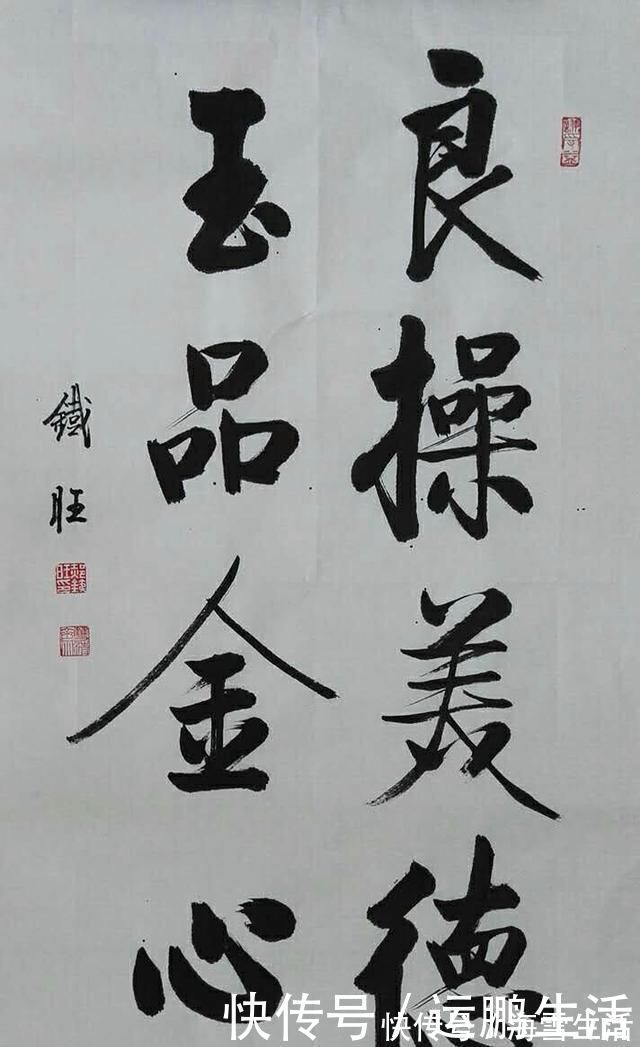 良操美德
玉品金心
鐵旺
快传号/运鹏生活
快传号/海雪生活